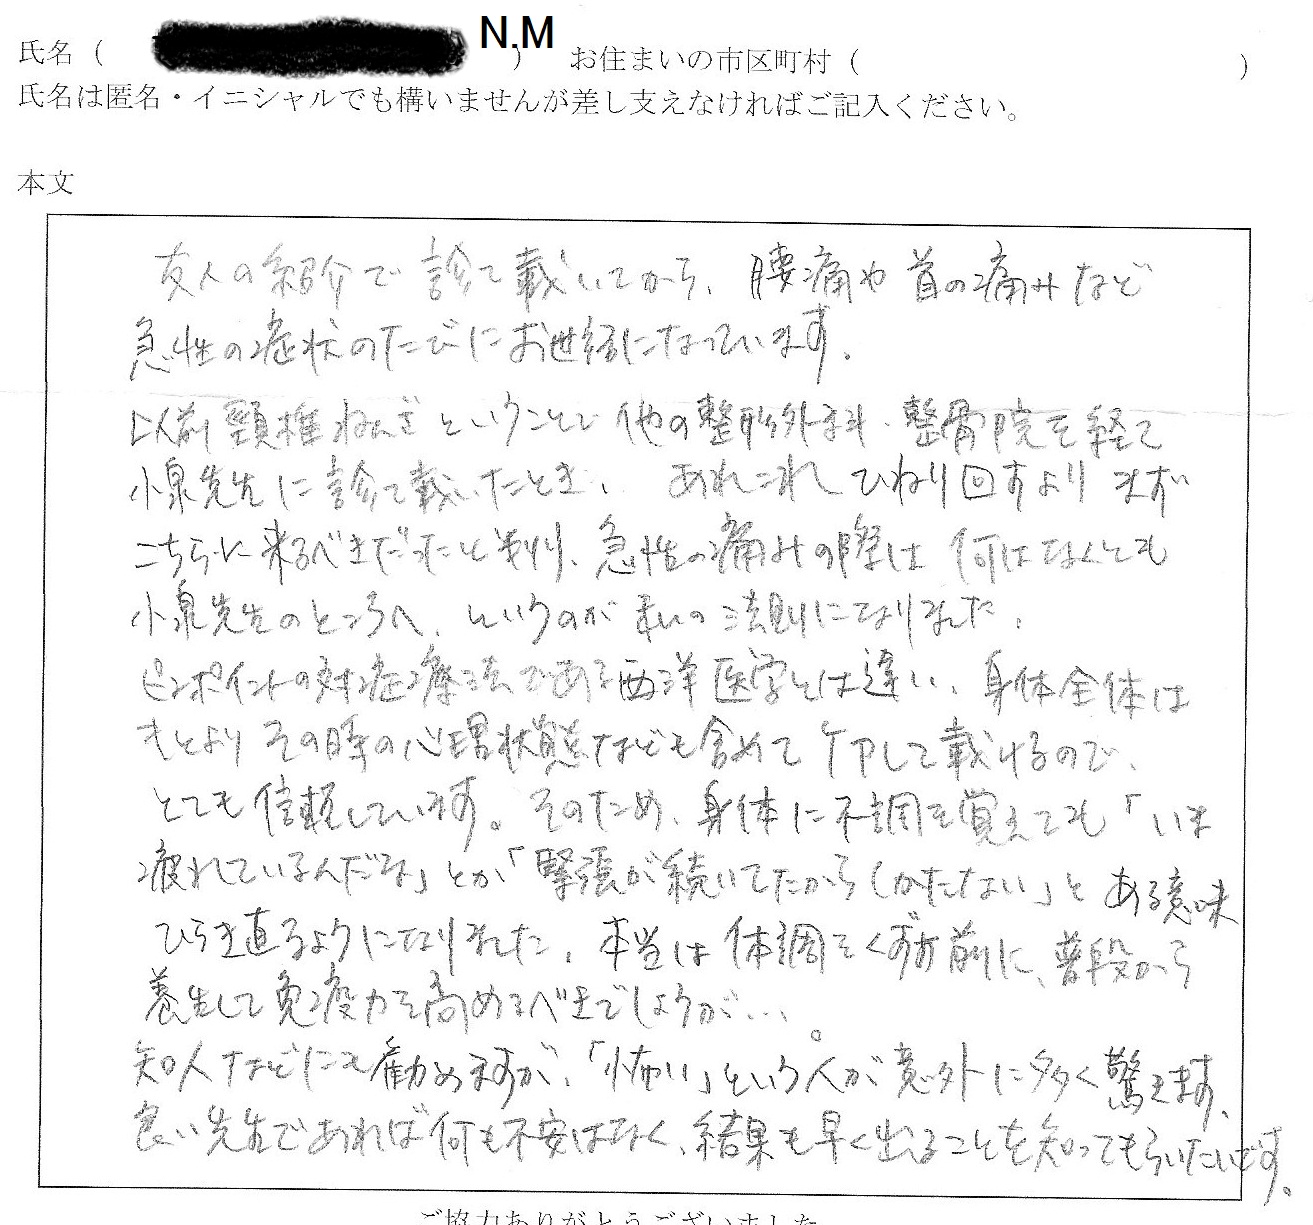 氏名（　　　　　N.M）　お住まいの市区町村（　　　　　）
氏名は匿名・イニシャルでも構いませんが差し支えなければご記入ください。
本文
友人の紹介で診て載いてから、腰痛や首の痛みなど
急性の症状のたびにお世話になっています。
以前頸椎ねんざということで他の整形外科・整骨院を経て
小泉先生に診て載いたとき、あれこれひねり回すよりまず
こちらに来るべきだったと判り、急性の痛みの際は何はなくとも
小泉先生のところへ、というのが私の法則になりました。
ピンポイントの対症療法である西洋医学とは違い、身体全体は
もとよりその時の心理状態なども含めてケアして載けるので、
とても信頼しています。そのため、身体に不調を覚えても「いま
疲れているんだな」とか「緊張が続いてたからしかたない」とある意味
ひらき直るようになりました。本当は体調をくずす前に、普段から
養生して免疫力を高めるべきでしょうが…。
知人などにも勧めますが、「怖い」という人が意外に多く驚きます。
良い先生であれば何も不安はなく、結果も早く出ることを知ってもらいたいです。
ご協力ありがとうございました